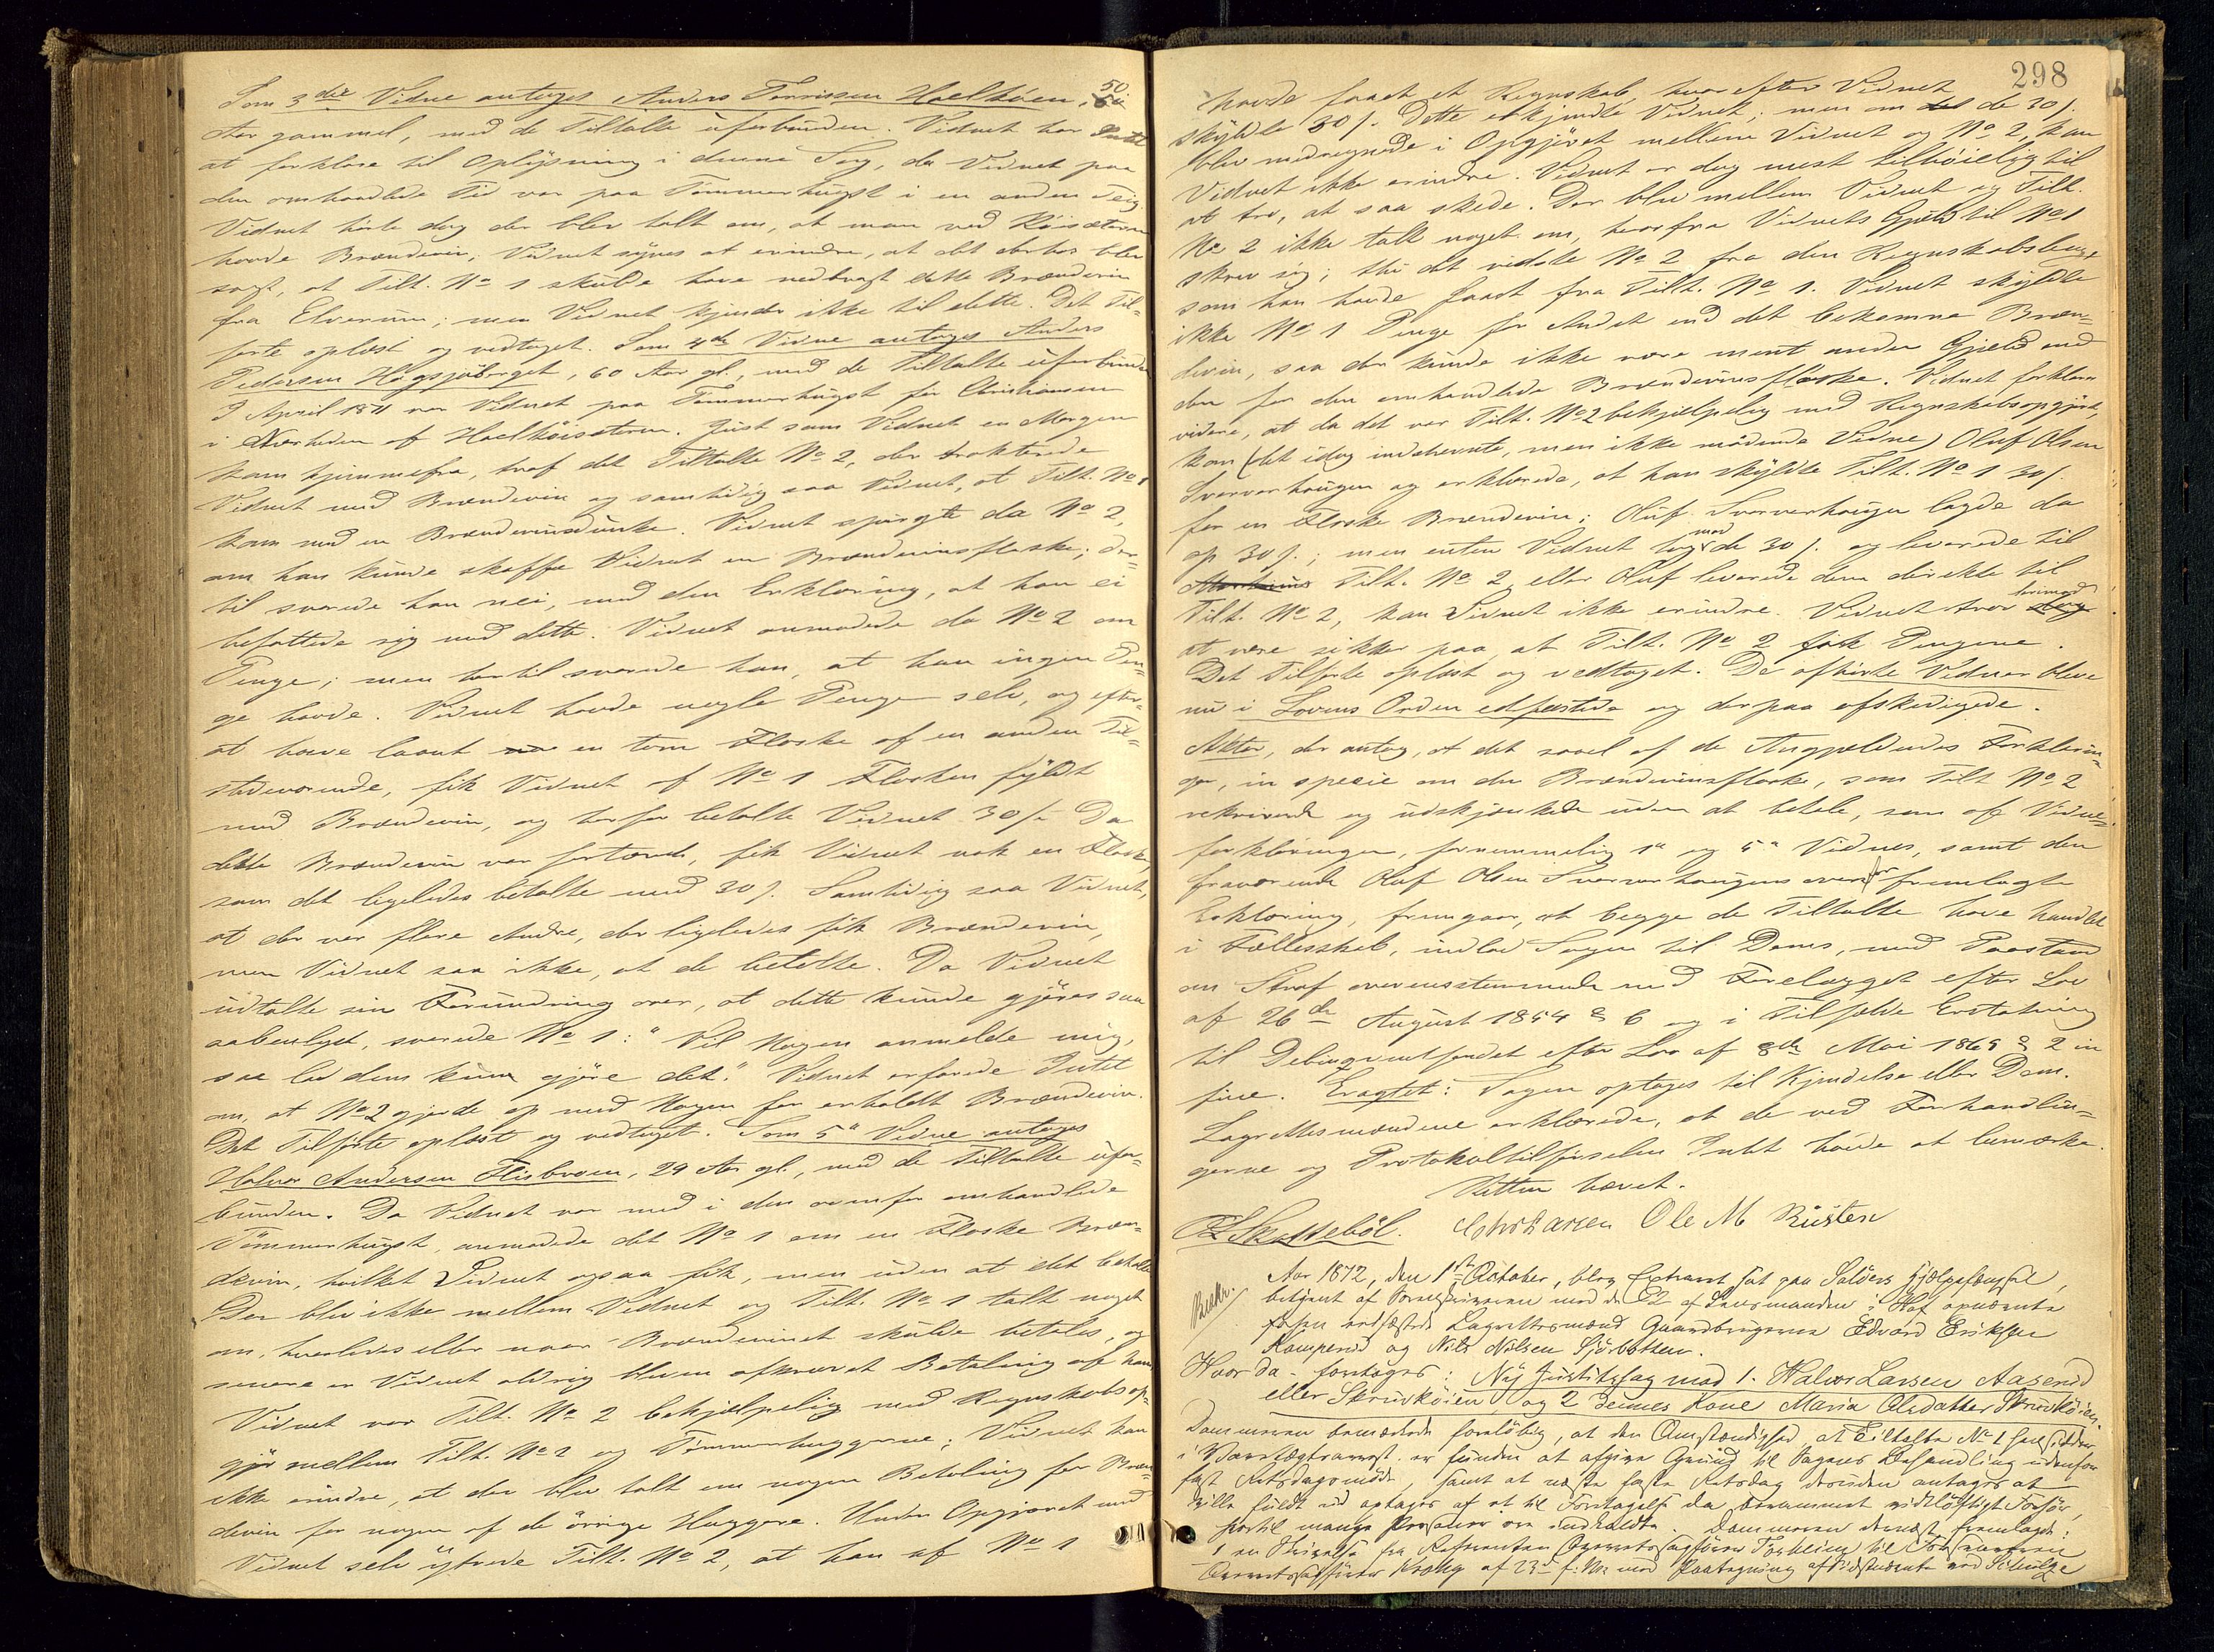 Som 3die Vidne antoges Anders Torrissen Haelhöen, 50
Aar gammel, med de Tiltalte uforbunden. Vidnet har Intet
at forklare til Oplysning i denne Sag, da Vidnet paa
den omhandlede Tid var paa Tømmerhugst i en anden Teig.
Vidnet hørte dog der blev talt om, at man ved Köisæteren
havde Brændevin; Vidnet synes at erindre, at det derhos blev
sagt, at Tilt. No 1 skulde have nedbragt dette Brændevin
fra Elverum; men Vidnet kjender ikke til dette. Det Til-
førte oplæst og vedtaget. Som 4de Vidne antoges Anders
Pedersen Høgsjöberget, 60 Aar gl., med de Tiltalte uforbunden
I April 1871 var Vidnet paa Tømmerhugst for Christiansen
i Nærheden af Haelhöisæteren. Just som Vidnet en Morgen
kom hjemmefra, traf det Tiltalte No 2, der trakterede
Vidnet med Brændevin og samtidig saa Vidnet, at Tilt. No 1
kom med en Brændevinsdunke. Vidnet spurgte da No 2,
om han kunde skaffe Vidnet en Brændevinsflaske; der-
til svarede han nei, med den Erklæring, at han ei
befattede sig med dette. Vidnet anmodede da No 2 om
Penge; men hertil svarede han, at han ingen Pen-
ge havde. Vidnet havde nogle Penge selv, og efter
at have laant en tom Flaske af en anden Til-
stedeværende, fik Vidnet af No 1 Flasken fyldt
med Brændevin, og herfor betalte Vidnet 30 s. Da
dette Brændevin var fortæret, fik Vidnet nok en Flaske,
som det ligeledes betalte med 30 s. Samtidig saa Vidnet,
at der var flere Andre, der ligeledes fik Brændevin,
men Vidnet saa ikke, at de betalte. Da Vidnet
udtalte sin Forundring over, at dette kunde gjøres saa
aabenlyst, svarede No 1: "Vil Nogen anmelde mig,
saa lad dem kun gjøre det." Vidnet erfarede Intet
om, at No 2 gjorde op med Nogen for erholdt Brændevin.
Det Tilførte oplæst og vedtaget. Som 5te Vidne antoges
Halvor Andersen Flisbroen, 29 Aar gl., med de Tiltalte ufor-
bunden. Da Vidnet var med i den ovenfor omhandlede
Tømmerhugst, anmodede det No 1 om en Flaske Bræn-
devin, hvilket Vidnet ogsaa fik, men uden at det betalte
Der blev ikke mellem Vidnet og Tilt. No 1 talt noget
om, hvorledes eller naar Brændevinet skulde betales, og
senere er Vidnet aldrig bleven afkrævet Betaling af ham
Vidnet var Tilt. No 2 behjælpelig med Regnskabsop-
gjør mellem Tilt. No 2 og Tømmerhuggerne; Vidnet kan
ikke erindre, at der blev talt om nogen Betaling for Bræn-
devin for nogen af de øvrige Huggere. Under Opgjøret med
Vidnet selv ytrede Tilt. No 2, at han af No 1
298
havde faaet et Regnskab, hvorefter Vidnet
skyldte 30 s. Dette erkjendte Vidnet; men om de 30 s.
blev medregnede i Opgjøret mellem Vidnet og No 2, kan
Vidnet ikke erindre. Vidnet er dog mest tilbøielig til
at tro, at saa skede. Der blev mellem Vidnet og Tilt.
No 2 ikke talt noget om, hvorfra Vidnets Gjæld til No 1
skrev sig; thi det vidste No 2 fra den Regnskabsbog
som han havde faaet fra Tilt. No 1. Vidnet skyldte
ikke No 1 Penge for Andet end det bekomne Bræn-
devin, saa der kunde ikke være ment anden Gjæld end
den for den omhandlede Brændevinsflaske. Vidnet forklarer
videre, at da det var Tilt. No 2 behjælpelig med Regnskabsopgjøret,
kom (det idag indstevnte, men ikke mødende Vidne) Oluf Olsen
Sværverhaugen og erklærede, at han skyldte Tilt. No 1 30 s.
for en Flaske Brændevin; Oluf Sværverhaugen lagde da
op 30 s.; men enten Vidnet tog mod de 30 s. og leverede til
Tilt. No 2, eller Oluf leverede dem direkte til
Tilt. No 2, kan Vidnet ikke erindre. Vidnet tror
at være sikker paa at Tilt. No 2 fik Pengene.
Det Tilførte oplæst og vedtaget. De afhørte Vidner bleve
nu i Lovens Orden edfæstede og derpaa afskedigede.
Aktor, der antog, at det saavel af de Angjældendes Forklarin-
ger, in specie om den Brændevinsflaske, som Tilt No 2
rekvirerede og udskjænkede uden at betale, som af Vidne-
forklaringer, fornemmelig 1ste og 5te Vidnes, samt den
fraværende Oluf Olsen Sværverhaugens ovenfor fremlagte
Erklæring, fremgaar, at begge de Tiltalte have handlet
i Fællesskab, indlod Sagen til Doms, med Paastand
om Straf overensstemmende med Forelægget efter Lov
af 26de August 1854 § 6 og i Tilfælde Erstatning
til Delinqventfondet efter Lov af 8de Mai 1869 § 2 in
fine. Eragtet: Sagen optages til Kjendelse eller Dom.
Lagrettesmændene erklærede, at de ved Forhandlin-
gerne og Protokoltilførselen Intet havde at bemærke.
Retten hævet.
Skatteböl. Christiansen Ole M Rusten
Aar 1872, den 1ste October, blev Extraret sat paa Solörs Hjælpefængsel,
betjent af Sorenskriveren med de af Lensmanden i Hof opnævnte
forhen edfæstede Lagrettesmænd Gaardbrugerne Edvard Eriksen
Kamperud og Nils Nilsen Sjørbotten.
Hvor da foretoges: Ny Justitssag mod 1. Halvor Larsen Aaserud
eller Skruvköien, og 2 dennes Kone Maria Olsdatter Skruvköien.
Dommeren bemærkede foreløbig, at den Omstændighed, at Tiltalte No 1 hensidder
i Varetægtsarrest, er funden at afgive Grund til Sagens Behandling udenfor
fast Retsdagsmöde, samt at næste faste Retsdag desuden antages at
ville fuldt ud optages af et til Foretagelse da berammet vidtløftigt Forhør,
hvortil mange Personer ere indkaldte. Dommeren dernæst fremlagde:
1 en Skrivelse fra Overretssagfører til
Overretssagfører Krohg af 23de f: M: med Paategning af